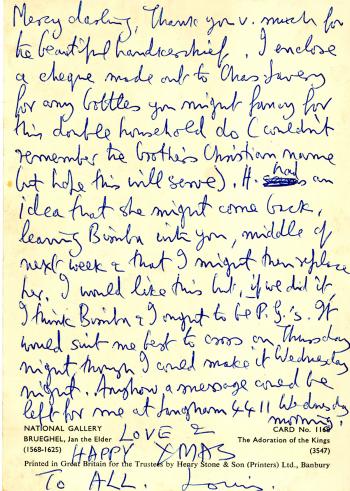 Mercy darling, Thank you v. much for
the beautiful handkerchief. I enclose
a cheque made out to Chas Lavery
for any bottles you might fancy for
this double household do (couldn't
remember the brother's Christian name
but hope this will serve). H. had an
idea that she might come back,
leaving Bimba with you, middle of
next week & that I might then replace
her. I would like this but, if we did it,
I think Bimba & I ought to be P.G.'s. It
would suit me best to cross on Thursday
night though I could make it Wednesday
night. Anyhow a message could be
left for me at Langham 4411 Wednesday
morning.
NATIONAL GALLERY
BRUEGHEL, Jan the Elder
(1568-1625)
CARD No. 1168
The Adoration of the Kings
(3547)
LOVE &
HAPPY XMAS
Printed in Great Britain for the Trustees by Henry Stone & Son (Printers) Ltd., Banbury
TO ALL. Louis.